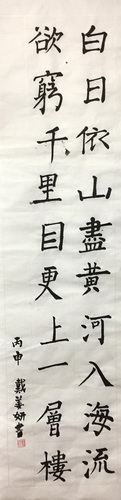 白日依山盡黄河入海流
欲窮千里目更上一層樓
丙申 戴姜妍書